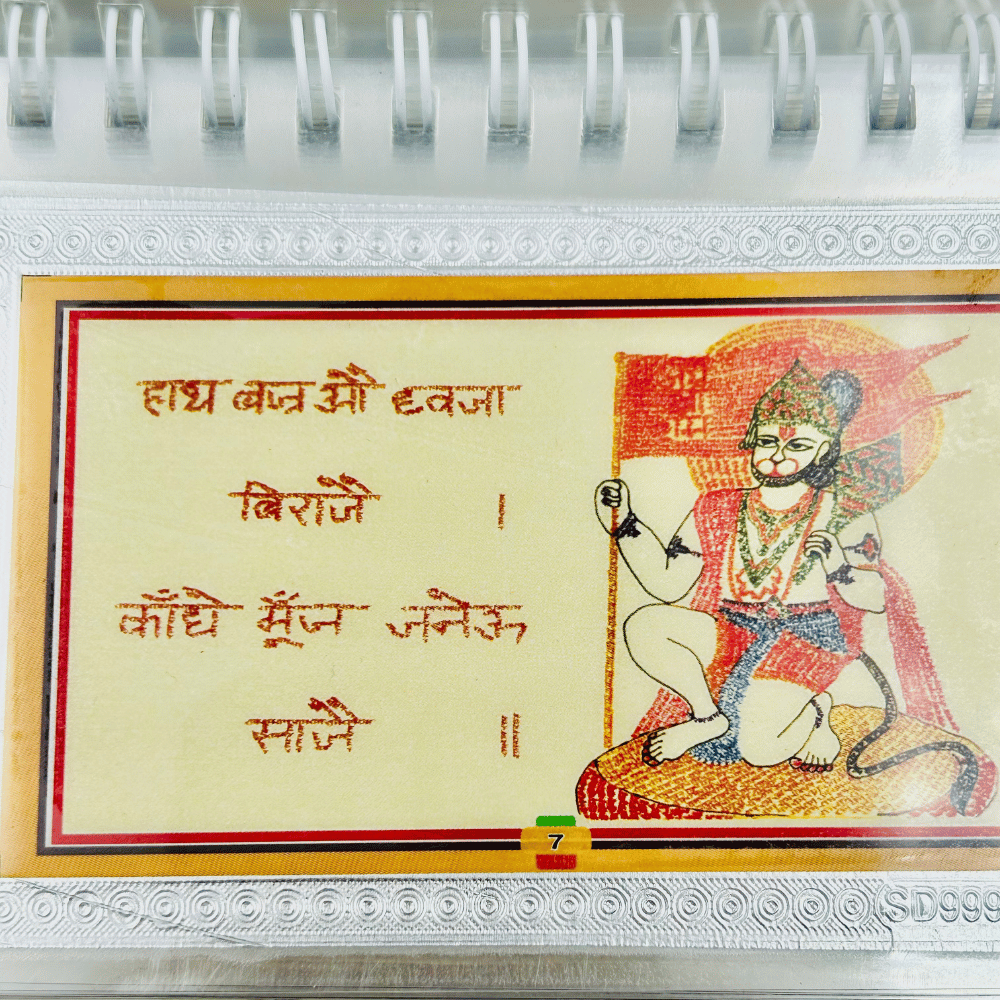 हाथ बज्र औ ध्वजा
बिराजै ।
काँधे मूँज जनेऊ
साजै ॥
7
SD999